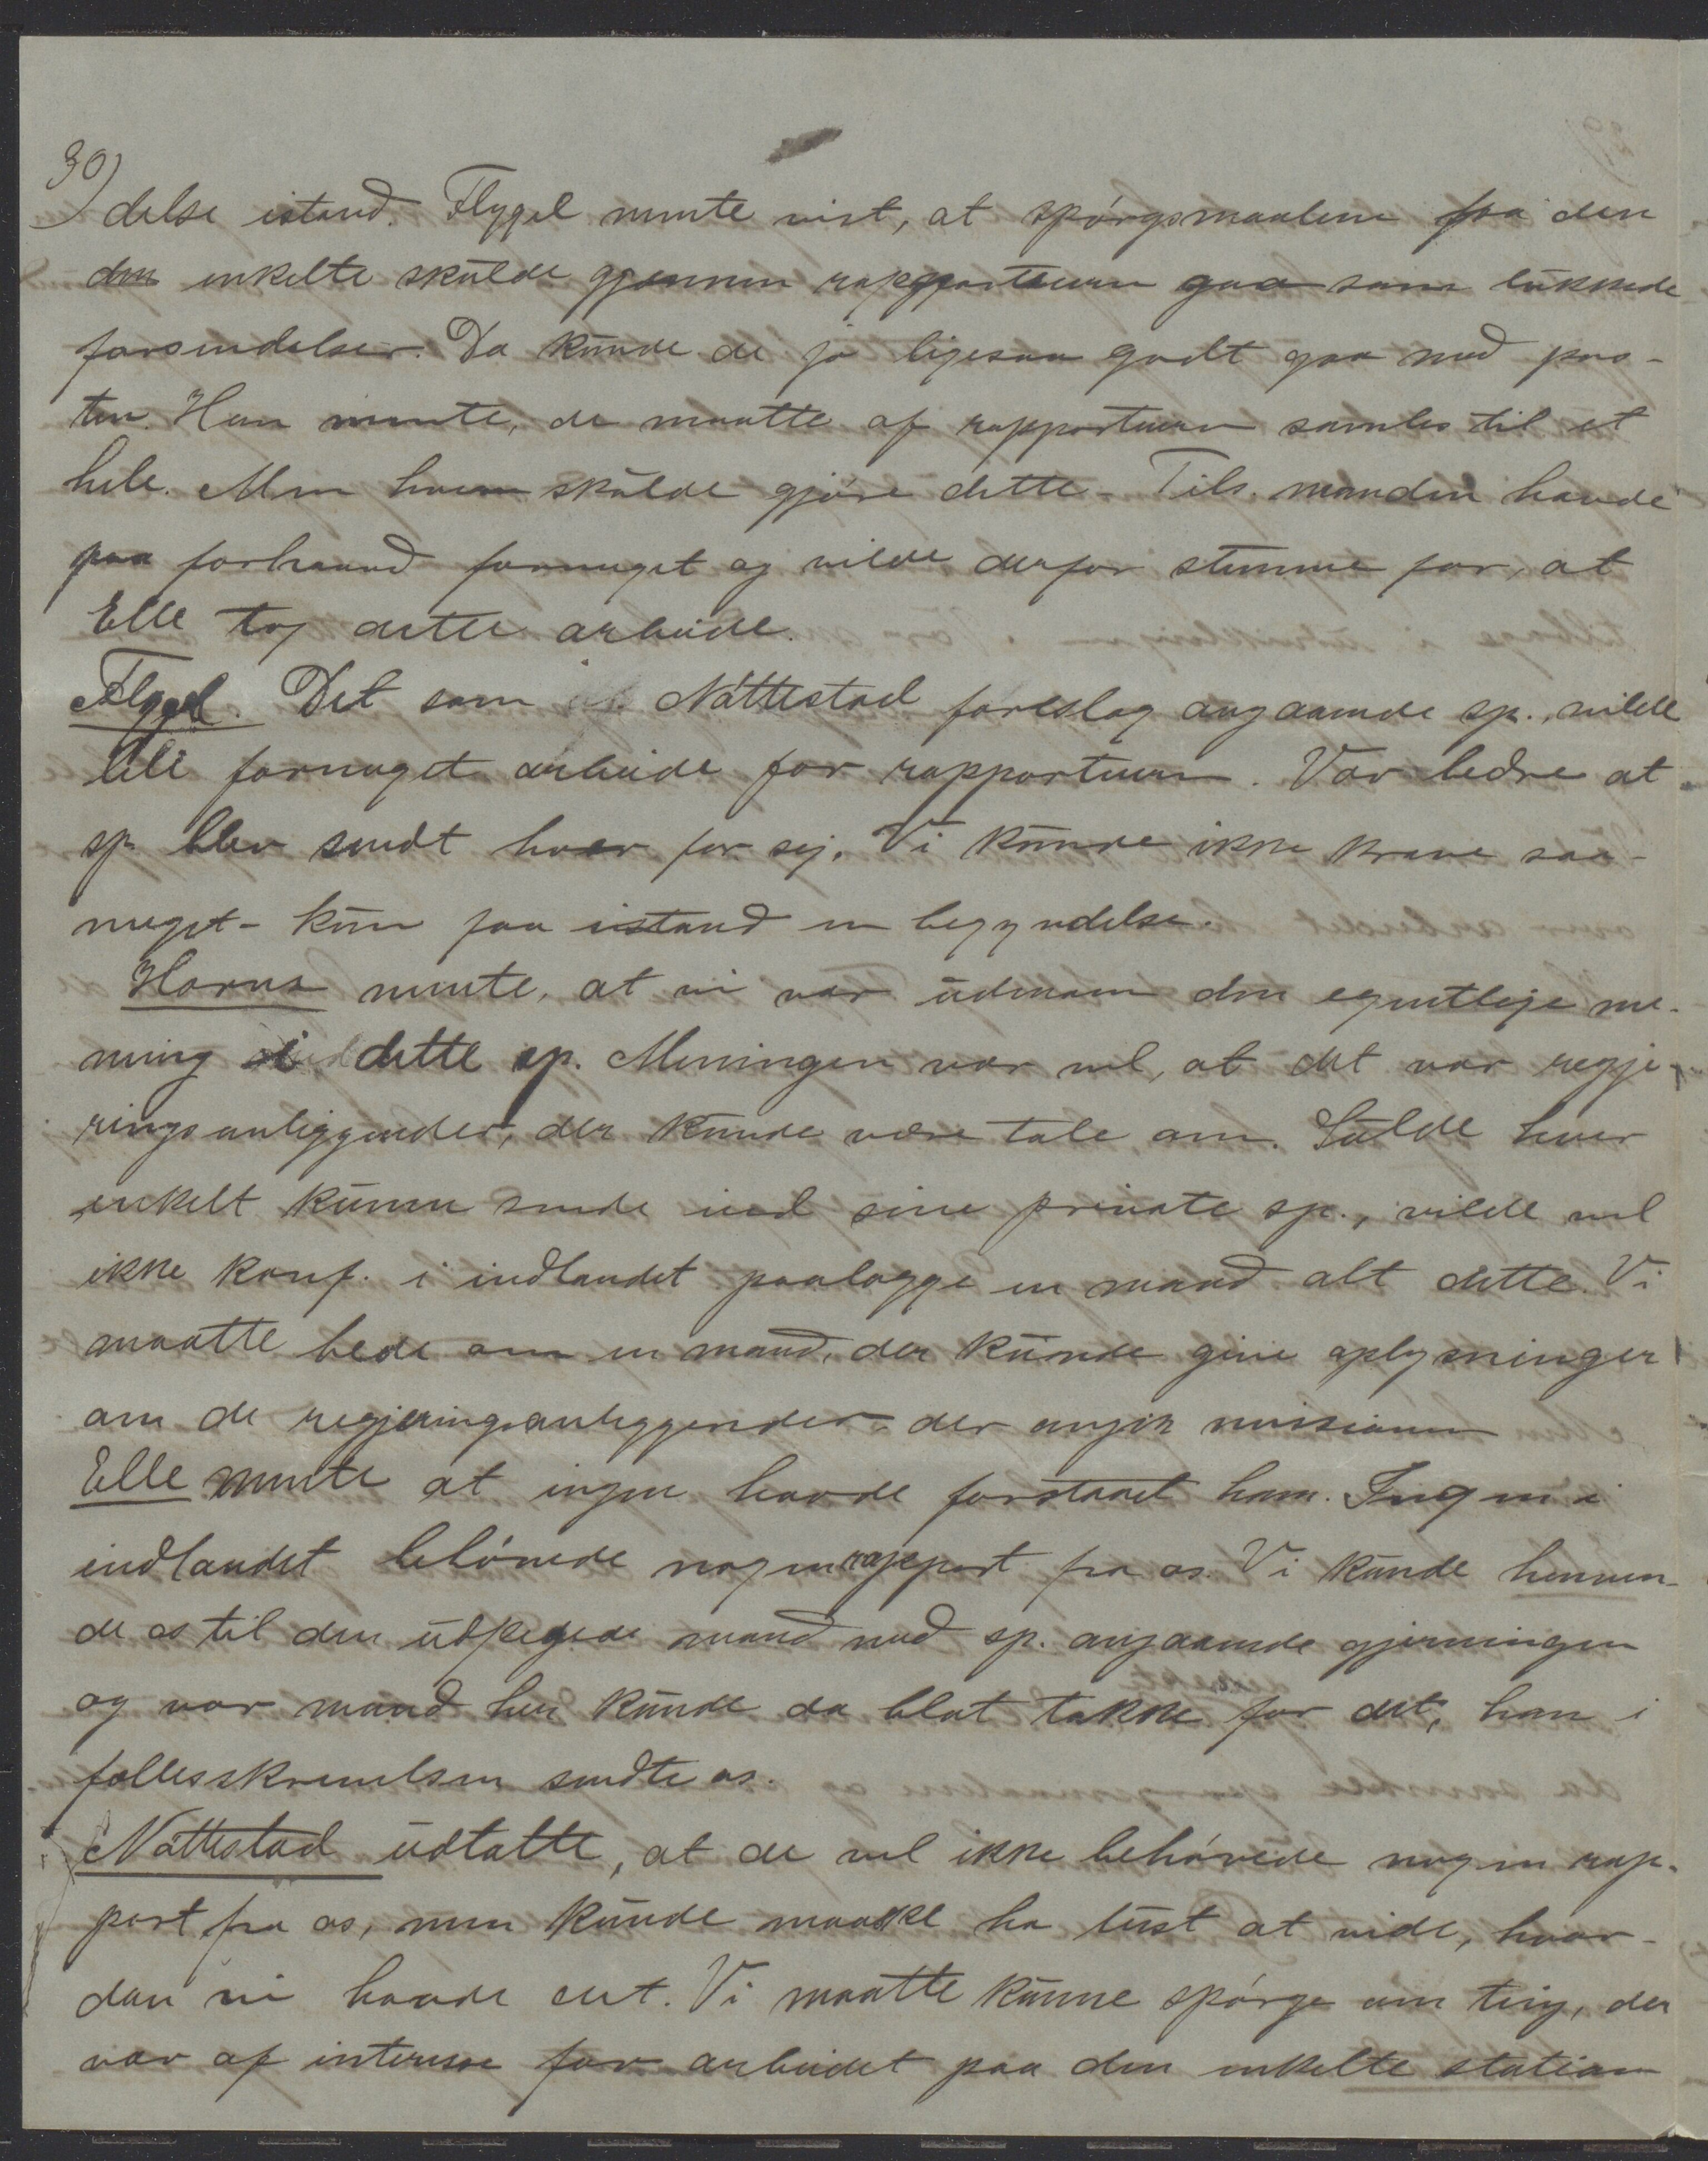 30)
delse istand. Flygel mente vist, at spórgsmaalene fra den
den enkelte skulde gjennem rapporteuren gaa som lukkede
forsendelser. Da kunde de jo ligesaa godt gaa med pos-
ten. Han mente, de maatte af rapporteuren samles til et
hele. Men hvem skulde gjóre dette - Tils. manden havde
paa forhaand formeget og vilde derfor stemme for, at
Elle tog dette arbeide.
Flygel. Det som Nóttestad foreslog angaaende sp., vilde
blie formeget arbeide for rapporteuren. Var bedre at
sp. blev sendt hver for sej. Vi kunde ikke kreve saa-
meget - kun faa istand en begyndelse.
Horne mente, at vi var udenom den egentlige me-
ning i dette sp. Meningen var vel, at det var regje-
ringsanliggender, der kunde være tale om. Sulde hver
enkelt kunne sende ind sine private sp., vilde vel
ikke konf. i indlandet paalægge en mand alt dette. Vi
maatte bede om en mand, der kunde give oplysninger
om de regjeringsanliggender der angik missionen
Elle mente at ingen havde forstaaet ham. Ingen i
indlandet behóvede nogen rapport fra os. Vi kunde henven-
de os til den udpegede mand med sp. angaaende gjerningen
og vor mand her kunde da blot takke for det, han i
fællesskrivelsen sendte os.
Nóttestad udtalte, at de vel ikke behóvede nogen rap-
port fra os, men kunde maaske ha lust at vide, hvor-
dan vi havde det. Vi maatte kunne spórge om ting, der
var af interesse for arbeidet paa den enkelte station